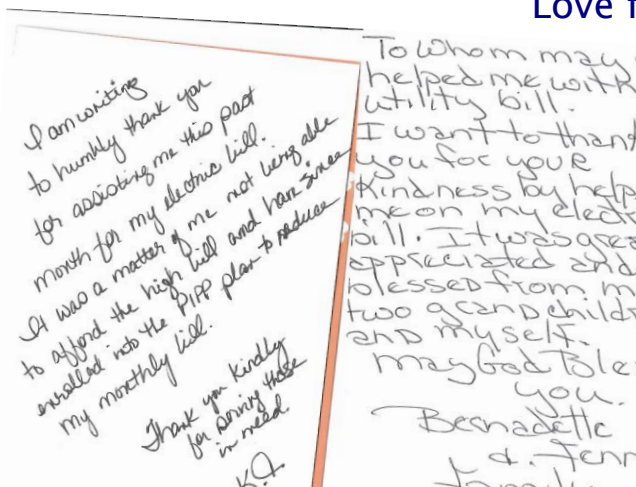 Love f
I am writing
to humbly thank you
for assisting me this past
month for my electric bill.
It was a matter of me not being able
to afford the high bill and have since
enrolled into the PIPP plan to reduce
my monthly bill.
Thank you kindly
for serving those
in need.
To whom may
helped me with
utility bill.
I want to thank
you for your
Kindness by help
me on my elect
bill. It was grea
appreciated and
blessed from m
two grandchild
and myself.
may God Ble
you.
Bernadette